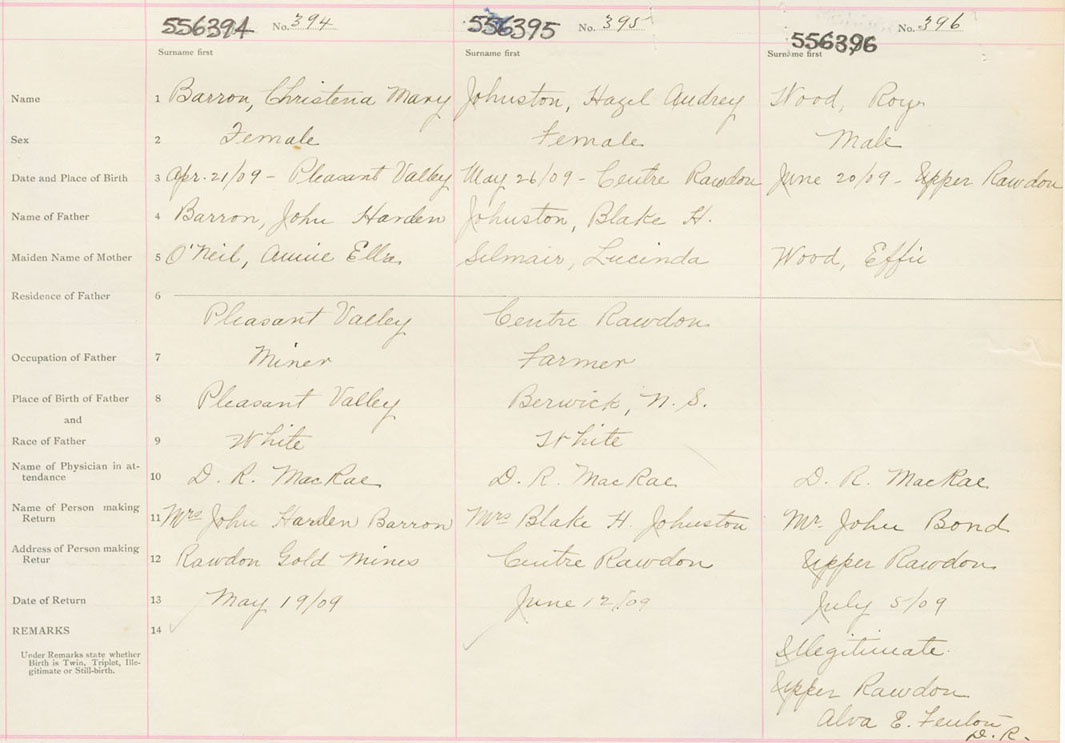 556394 No. 394 556395 No. 395 556396 No. 396
Surname first Surname first Surname first
Name 1 Barron, Christena Mary Johnston, Hazel Audrey Wood, Roy
Sex 2 Female Female Male
Date and Place of Birth 3 Apr. 21/09 - Pleasant Valley May 26/09 - Centre Rawdon June 20/09 - Upper Rawdon
Name of Father 4 Barron, John Harden Johnston, Blake H.
Maiden Name of Mother 5 O'Neil, Annie Ella Lucinda Wood, Effie
Residence of Father 6
Pleasant Valley Centre Rawdon
Occupation of Father 7 Miner Farmer
Place of Birth of Father 8 Pleasant Valley Berwick, N.S.
and
Race of Father 9 White White
Name of Physician in at-
tendance 10 D. R. MacRae D. R. MacRae D. R. MacRae
Name of Person making
Return 11 Mrs John Harden Barron Mrs Blake H. Johnston Mr. John Bond
Address of Person making
Retur 12 Rawdon Gold Mines Centre Rawdon Upper Rawdon
Date of Return 13 May 19/09 June 12/09 July 5/09
REMARKS 14
Under Remarks state whether
Birth is Twin, Triplet, Ille-
gitimate or Still-birth.
Illegitimate.
Upper Rawdon
Alva E. Fenton
D. R.